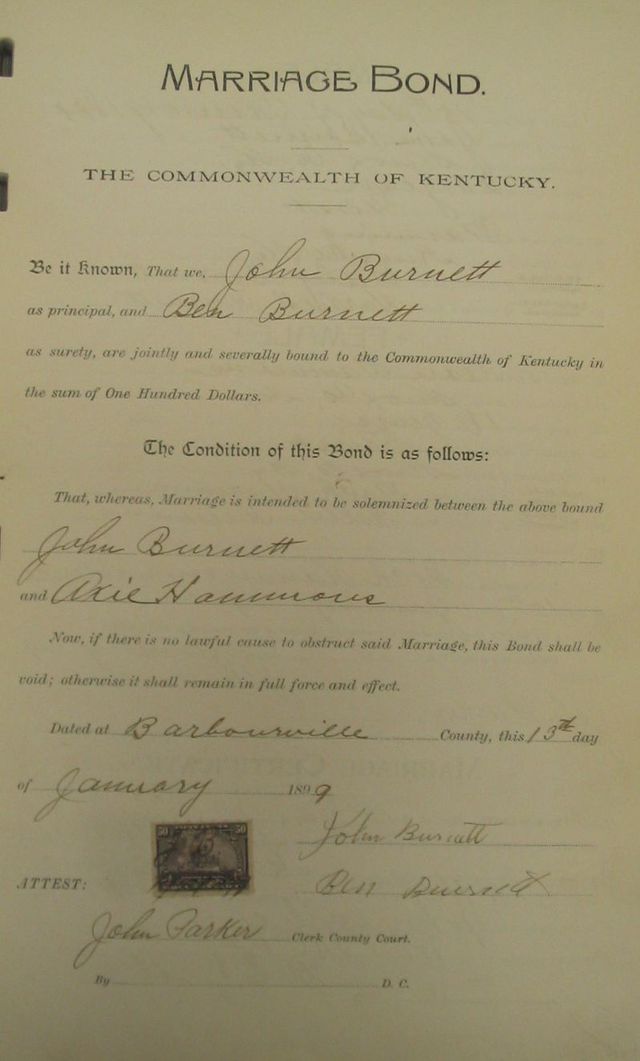 MARRIAGE BOND.
THE COMMONWEALTH OF KENTUCKY.
Be it Known, That we, John Burnett
as principal, and Ben Burnett
as surety, are jointly and severally bound to the Commonwealth of Kentucky in
the sum of One Hundred Dollars.
The Condition of this Bond is as follows:
That, whereas, Marriage is intended to be solemnized between the above bound
John Burnett
and Axie Hammons
Now, if there is no lawful cause to obstruct said Marriage, this Bond shall be
void; otherwise it shall remain in full force and effect.
Dated at Barboursville County, this 13th day
of January 1899
50 50
John Burnett
ATTEST: Ben Burnett
John Parker Clerk County Court.
By D. C.